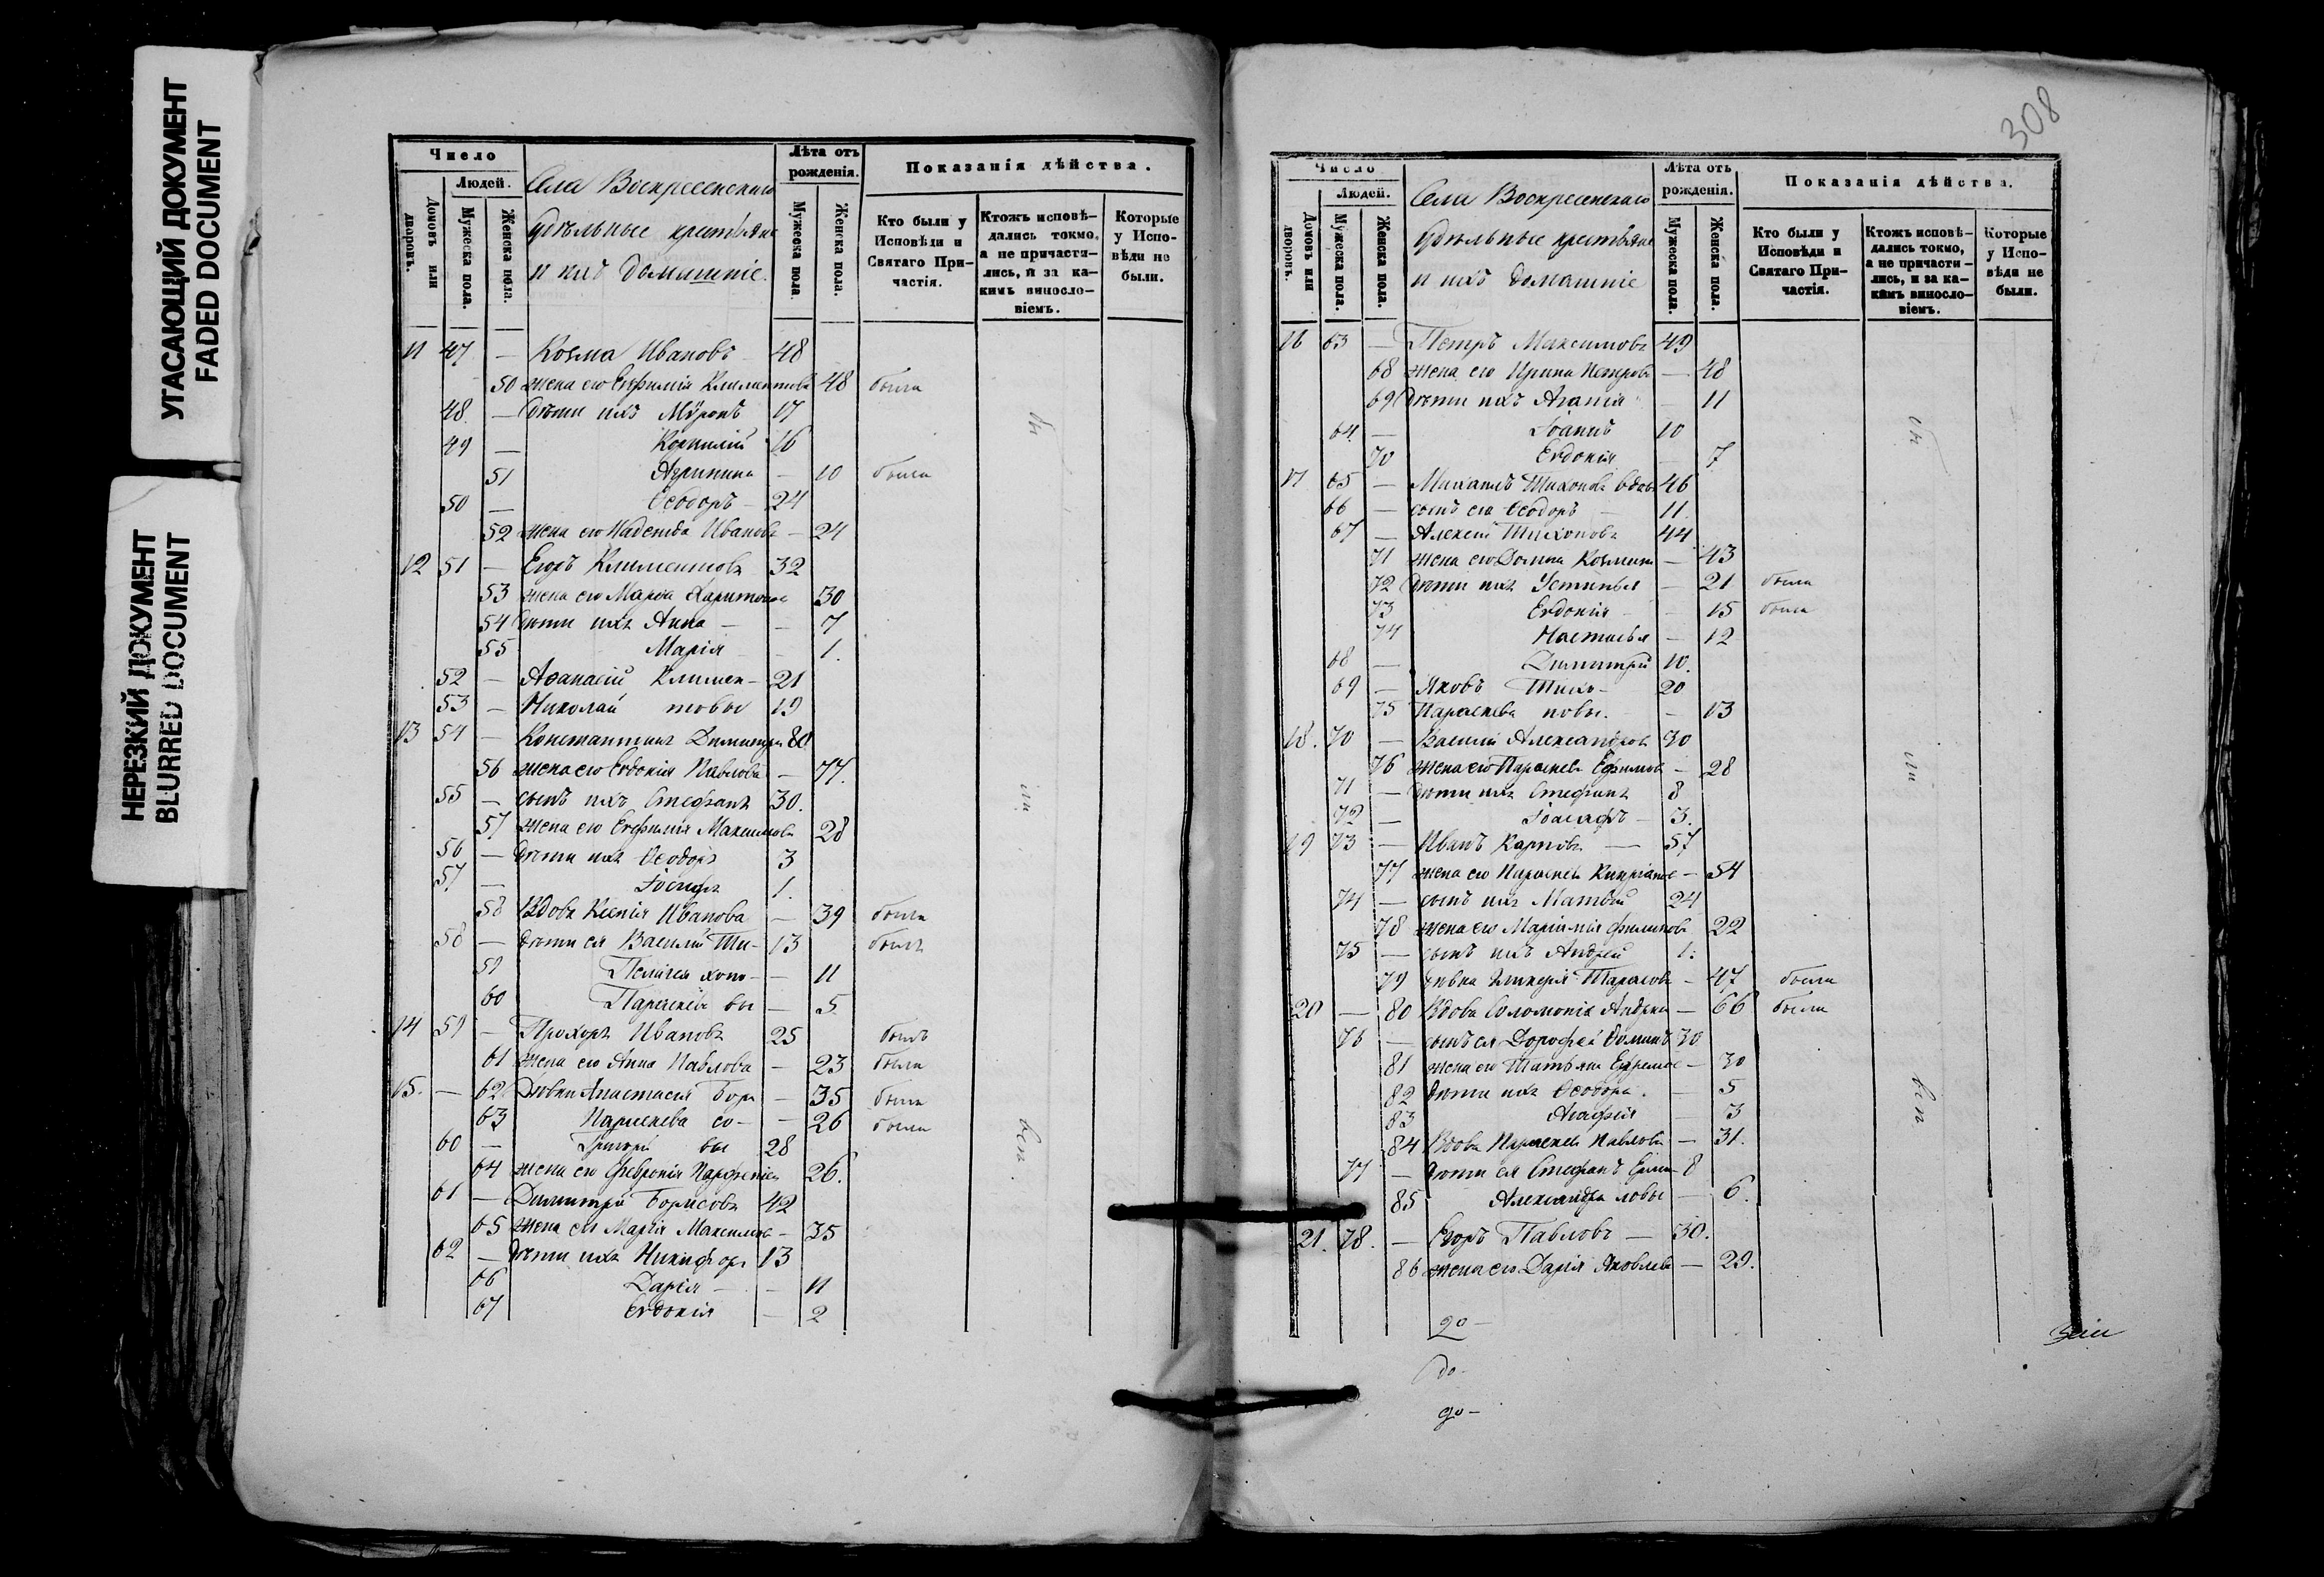 УГАСАЮЩИЙ ДОКУМЕНТ
FADED DOCUMENT
НЕРЕЗКИЙ ДОКУМЕНТ
BLURRED DOCUMENT
Число
Людей.
Домовъ или дворовъ.
Мужеска пола.
Женска пола.
Села Воскресенскаго
удѣльные крестьяне
и ихъ домашніе.
Лѣта отъ рожденія.
Мужеска пола.
Женска пола.
Показанія дѣйства.
Кто были у Исповѣди и Святаго Причастія.
Ктожъ исповѣдались токмо, а не причастились, и за какимъ винословіемъ.
Которые у Исповѣди не были.
11 47 — Козма Ивановъ 48
50 жена его Евфимія Климентова 48 была
48 — дѣти ихъ Мѵронъ 17
49 — Корнилій 16
51 Агрипина — 10 была
50 — Ѳеодоръ — 24
52 жена его Надежда Иванова — 24
12 51 — Егоръ Климентовъ 32
53 жена его Марѳа Харитонова 30
54 дѣти ихъ Анна — — 7
55 Марія — 1.
52 — Аѳанасій Климен- 21
53 — Николай товы 19
13 54 — Константинъ Димитри 80
56 жена его Евдокія Павлова — 77.
55 — сынъ ихъ Стефанъ 30.
57 жена его Евфимія Максимова 28
56 — дѣти ихъ Ѳеодоръ 3
57 — Іосифъ 1.
58 Вдова Ксенія Иванова — 39 была
58 — дѣти ея Василій Ти- 13 былъ
59 Пелагея хоно- — 11
60 Параскева вы — 5
14 59 — Прохоръ Ивановъ 25 былъ
61 жена его Анна Павлова — 23 была
15. — 62 Дѣвки Анастасія Бори — 35 была
63 Параскева со- — 26 была
60 — Григорій вы 28
64 жена его Февронія Парфенiева 26.
61 — Димитрій Борисовъ 42
65 жена его Марія Максимова — 35
62 — дѣти ихъ Никифоръ 13
66 Дарія — — 11
67 Евдокія — 2
308
Число
Людей.
Домовъ или дворовъ.
Мужеска пола.
Женска пола.
Села Воскресенскаго
удѣльные крестьяне
и ихъ домашніе
Лѣта отъ рожденія.
Мужеска пола.
Женска пола.
Показанія дѣйства.
Кто были у Исповѣди и Святаго Причастія.
Ктожъ исповѣдались токмо, а не причастились, и за какимъ винословіемъ.
Которые у Исповѣди не были.
16 63 — Петръ Максимовъ 49
68 жена его Ирина Петрова — 48
69 дѣти ихъ Агапія — 11
64 — Іоаннъ 10
70 Евдокія — 7
17 65 — Михаилъ Тихоновъ вдовъ 46
66 — сынъ его Ѳеодоръ — 11.
67 — Алексій Тихоновъ 44
71 жена его Домна Козмина — 43
72 дѣти ихъ Устинья — 21 была
73 Евдокія — 15 была
74 Настасья — 12
68 — Димитрій 10.
69 — Яковъ Тихо- 20
75 Параскева новы. — 13
18. 70 — Василій Александровъ 30
76 жена его Параскева Ефимова — 28
71 — дѣти ихъ Стефанъ 8
72 — Іоасафъ — 3.
19 73 — Иванъ Карповъ — 57
77 жена его Параскева Кипріанова — 54
74 — сынъ ихъ Матвѣй 24
78 жена его Маріамія Филипова 22
75 — сынъ ихъ Андрей 1.
79 дѣвка Гликерія Тарасова — 47 была
20 — 80 Вдова Соломонія Андреева — 66 была
76 — сынъ ея Дорофей 30
81 жена его Татьяна Ефремова — 30
82 дѣти ихъ Ѳеодора. — 5
83 Агафія — 3
84 Вдова Параскева Павлова — 31.
77 — дѣти ея Стефанъ 8
85 Александра ловы — 6.
21. 78. — Егоръ Павловъ — 30.
86 жена его Дарія Яковлева — 29.
до-